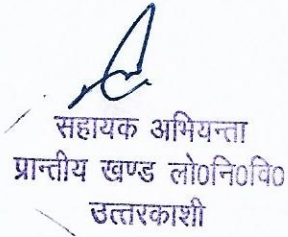 सहायक अभियन्ता
प्रान्तीय खण्ड लो०नि०वि०
उत्तरकाशी